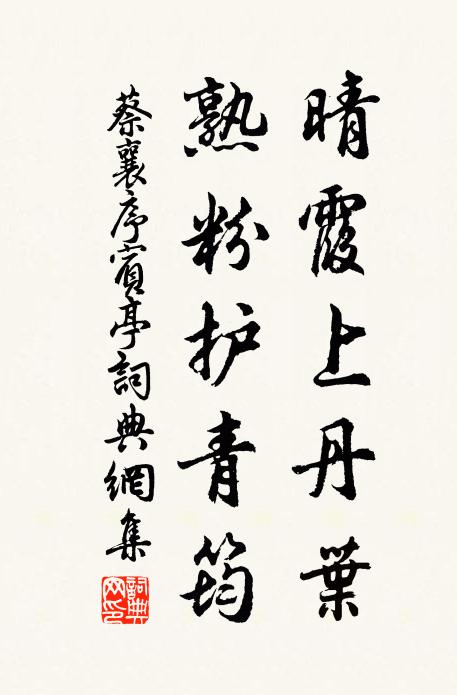 晴霞上丹葉
熟粉护青筠
蔡襄序賓亭詞典網集
詞典网印